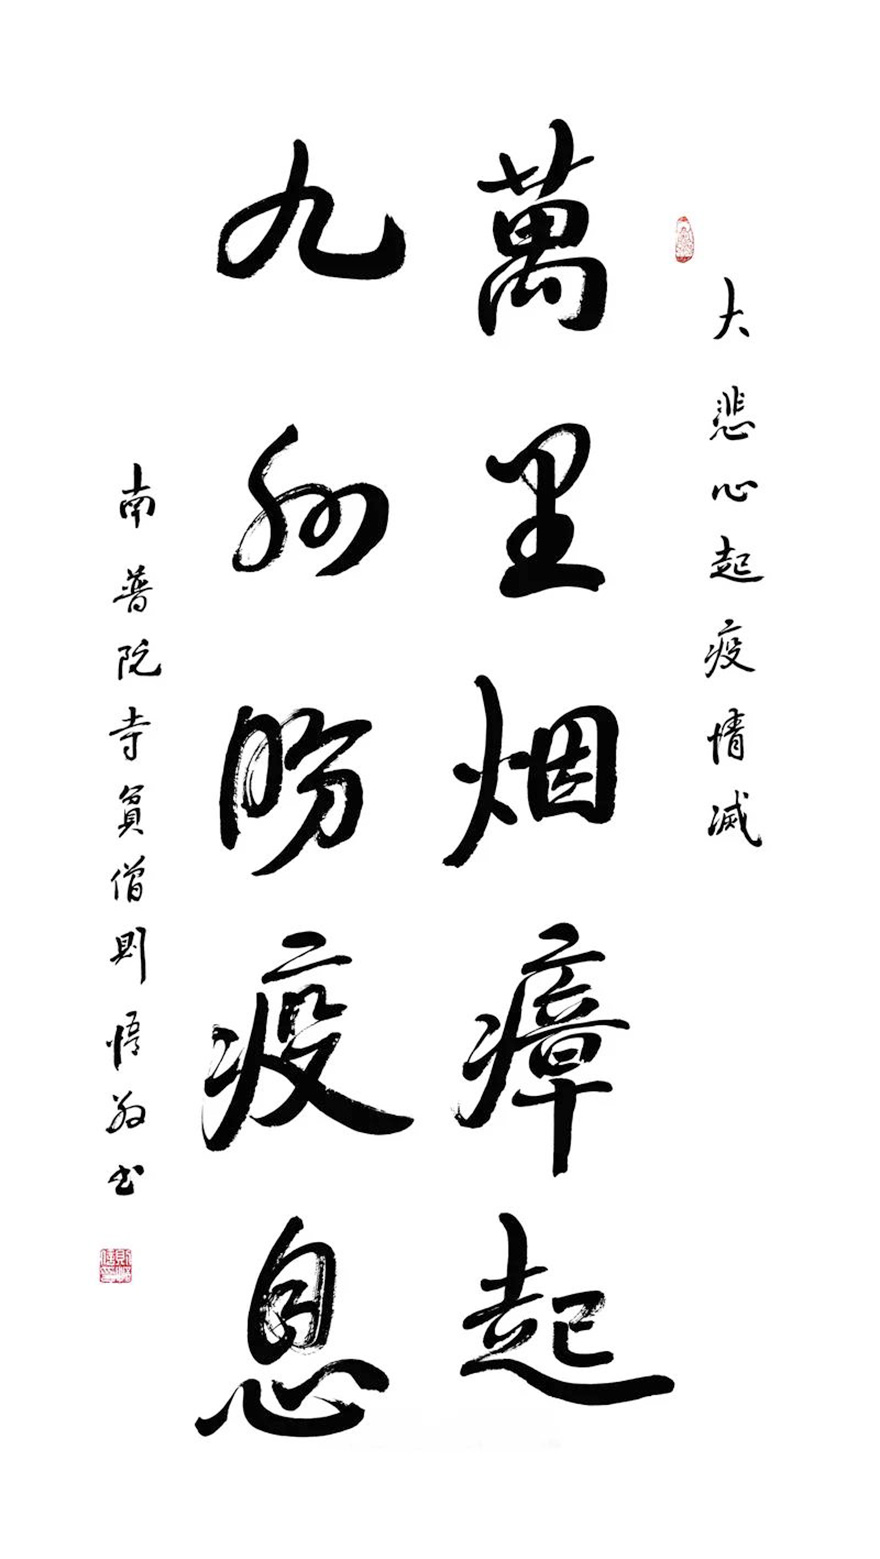 大悲心起疫情滅
萬里烟瘴起
九州盼疫息
南普陀寺貧僧則悟书